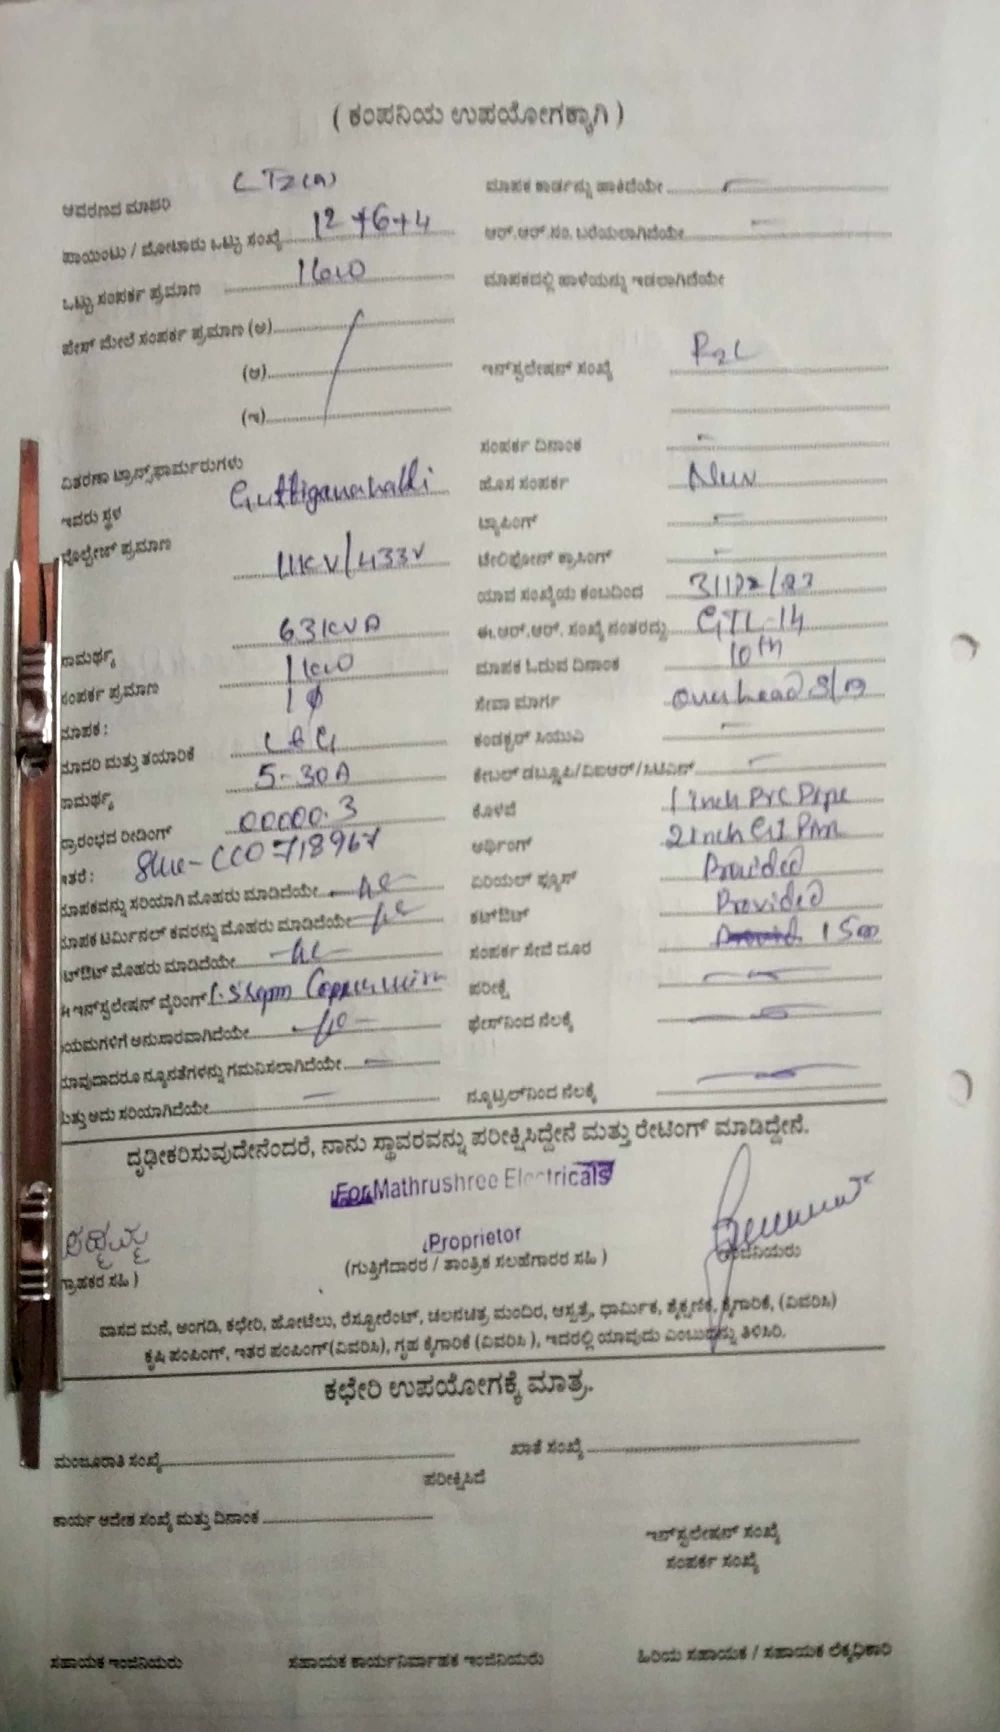 ( ಕಂಪನಿಯ ಉಪಯೋಗಕ್ಕಾಗಿ )
ಆವರಣದ ಮಾದರಿ
ಮಾಪಕ ಕಾರ್ಡನ್ನು ಹಾಕಿದೆಯೇ
ಪಾಯಿಂಟು / ಮೋಟಾರು ಒಟ್ಟು ಸಂಖ್ಯೆ 12+6+4
ಆರ್.ಆರ್.ನಂ. ಬರೆಯಲಾಗಿದೆಯೇ
ಒಟ್ಟು ಸಂಪರ್ಕ ಪ್ರಮಾಣ
ಮಾಪಕದಲ್ಲಿ ಹಾಳೆಯನ್ನು ಇಡಲಾಗಿದೆಯೇ
ಫೇಸ್ ಮೇಲೆ ಸಂಪರ್ಕ ಪ್ರಮಾಣ (ಅ)
(ಆ)
ಇನ್‌ಸ್ಟಲೇಷನ್ ಸಂಖ್ಯೆ
(ಇ)
ವಿತರಣಾ ಟ್ರಾನ್ಸ್‌ಫಾರ್ಮರುಗಳು
ಸಂಪರ್ಕ ದಿನಾಂಕ
ಇವರು ಸ್ಥಳ Guttiganahalli
ಹೊಸ ಸಂಪರ್ಕ New
ಟ್ಯಾಪಿಂಗ್
ವೋಲ್ಟೇಜ್ ಪ್ರಮಾಣ 11KV/433V
ಟೆಲಿಫೋನ್ ಕ್ರಾಸಿಂಗ್
ಯಾವ ಸಂಖ್ಯೆಯ ಕಂಬದಿಂದ
ಸಾಮರ್ಥ್ಯ 63KVA
ಈ.ಆರ್.ಆರ್. ಸಂಖ್ಯೆ ನಂತರದ್ದು GTL-14
ಸಂಪರ್ಕ ಪ್ರಮಾಣ
ಮಾಪಕ ಓದುವ ದಿನಾಂಕ 10th
ಮಾಪಕ : 1 ϕ
ಸೇವಾ ಮಾರ್ಗ Overhead
ಮಾದರಿ ಮತ್ತು ತಯಾರಿಕೆ
ಕಂಡಕ್ಟರ್ ಸಿಯುವಿ
ಸಾಮರ್ಥ್ಯ 5-30A
ಕೇಬಲ್ ಡಬ್ಲ್ಯೂಪಿ/ವಿಐಆರ್/ಸಿಟಿಎಸ್
ಪ್ರಾರಂಭದ ರೀಡಿಂಗ್ 00000.3
ಕೊಳವೆ 1 inch PVC Pipe
ಇತರೆ : Slno- CC0718967
ಆರ್ಥಿಂಗ್ 2 inch GI
ಮಾಪಕವನ್ನು ಸರಿಯಾಗಿ ಮೊಹರು ಮಾಡಿದೆಯೇ
ಏರಿಯಲ್ ಫ್ಯೂಸ್ Provided
ಮಾಪಕ ಟರ್ಮಿನಲ್ ಕವರನ್ನು ಮೊಹರು ಮಾಡಿದೆಯೇ
ಕಟ್‌ಔಟ್ Provided
ಕಟ್‌ಔಟ್ ಮೊಹರು ಮಾಡಿದೆಯೇ
ಸಂಪರ್ಕ ಸೇವೆ ದೂರ
ಈ ಇನ್‌ಸ್ಟಲೇಷನ್ ವೈರಿಂಗ್ 1.5 sqmm Copper wire
ಪರೀಕ್ಷೆ
ನಿಯಮಗಳಿಗೆ ಅನುಸಾರವಾಗಿದೆಯೇ
ಫೇಸ್‌ನಿಂದ ನೆಲಕ್ಕೆ
ಯಾವುದಾದರೂ ನ್ಯೂನತೆಗಳನ್ನು ಗಮನಿಸಲಾಗಿದೆಯೇ
ಮತ್ತು ಅದು ಸರಿಯಾಗಿದೆಯೇ
ನ್ಯೂಟ್ರಲ್‌ನಿಂದ ನೆಲಕ್ಕೆ
ದೃಢೀಕರಿಸುವುದೇನೆಂದರೆ, ನಾನು ಸ್ಥಾವರವನ್ನು ಪರೀಕ್ಷಿಸಿದ್ದೇನೆ ಮತ್ತು ರೇಟಿಂಗ್ ಮಾಡಿದ್ದೇನೆ.
For Mathrushree Electricals
Proprietor
ಗ್ರಾಹಕರ ಸಹಿ )
(ಗುತ್ತಿಗೆದಾರರ / ತಾಂತ್ರಿಕ ಸಲಹೆಗಾರರ ಸಹಿ )
ಇಂಜಿನಿಯರು
ವಾಸದ ಮನೆ, ಅಂಗಡಿ, ಕಛೇರಿ, ಹೋಟೆಲು, ರೆಸ್ಟೋರೆಂಟ್, ಚಲನಚಿತ್ರ ಮಂದಿರ, ಆಸ್ಪತ್ರೆ, ಧಾರ್ಮಿಕ, ಶೈಕ್ಷಣಿಕ, ಕೈಗಾರಿಕೆ, (ವಿವರಿಸಿ)
ಕೃಷಿ ಪಂಪಿಂಗ್, ಇತರ ಪಂಪಿಂಗ್ (ವಿವರಿಸಿ), ಗೃಹ ಕೈಗಾರಿಕೆ (ವಿವರಿಸಿ ), ಇದರಲ್ಲಿ ಯಾವುದು ಎಂಬುದನ್ನು ತಿಳಿಸಿರಿ.
ಕಛೇರಿ ಉಪಯೋಗಕ್ಕೆ ಮಾತ್ರ.
ಮಂಜೂರಾತಿ ಸಂಖ್ಯೆ
ಖಾತೆ ಸಂಖ್ಯೆ
ಪರೀಕ್ಷಿಸಿದೆ
ಕಾರ್ಯ ಆದೇಶ ಸಂಖ್ಯೆ ಮತ್ತು ದಿನಾಂಕ
ಇನ್‌ಸ್ಟಲೇಷನ್ ಸಂಖ್ಯೆ
ಸಂಪರ್ಕ ಸಂಖ್ಯೆ
ಸಹಾಯಕ ಇಂಜಿನಿಯರು
ಸಹಾಯಕ ಕಾರ್ಯನಿರ್ವಾಹಕ ಇಂಜಿನಿಯರು
ಹಿರಿಯ ಸಹಾಯಕ / ಸಹಾಯಕ ಲೆಕ್ಕಧಿಕಾರಿ